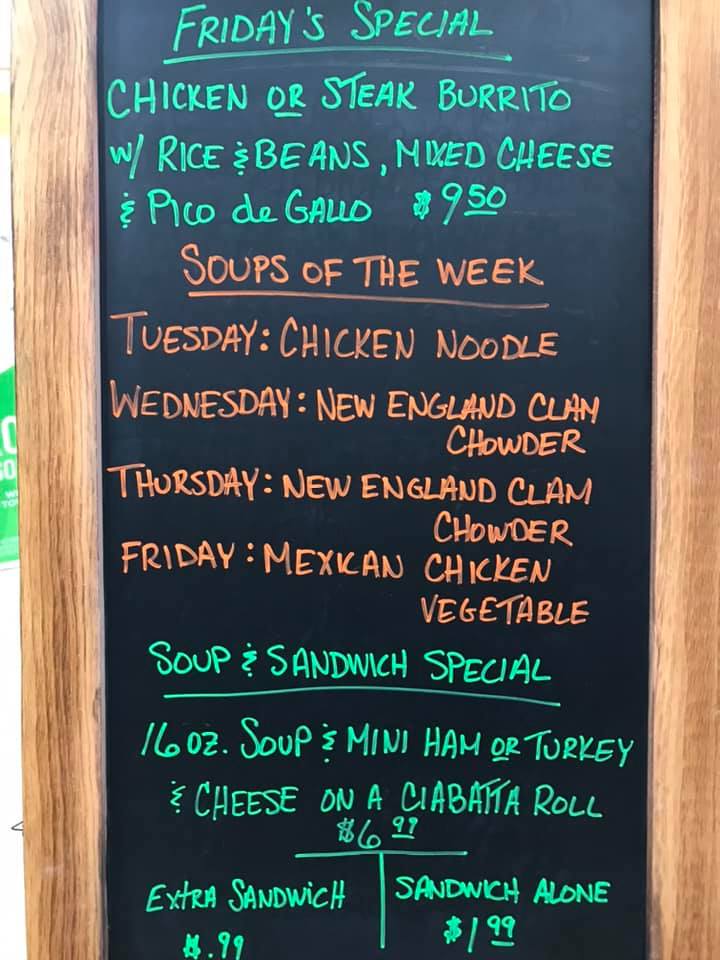 FRIDAY'S SPECIAL
CHICKEN OR STEAK BURRITO
W/ RICE & BEANS, MIXED CHEESE
& PICO de GALLO $9.50
SOUPS OF THE WEEK
TUESDAY: CHICKEN NOODLE
WEDNESDAY: NEW ENGLAND CLAM
CHOWDER
THURSDAY: NEW ENGLAND CLAM
CHOWDER
FRIDAY: MEXICAN CHICKEN
VEGETABLE
SOUP & SANDWICH SPECIAL
16 OZ. SOUP & MINI HAM OR TURKEY
& CHEESE ON A CIABATTA ROLL
$6 99
EXTRA SANDWICH
$.99
SANDWICH ALONE
$1 99